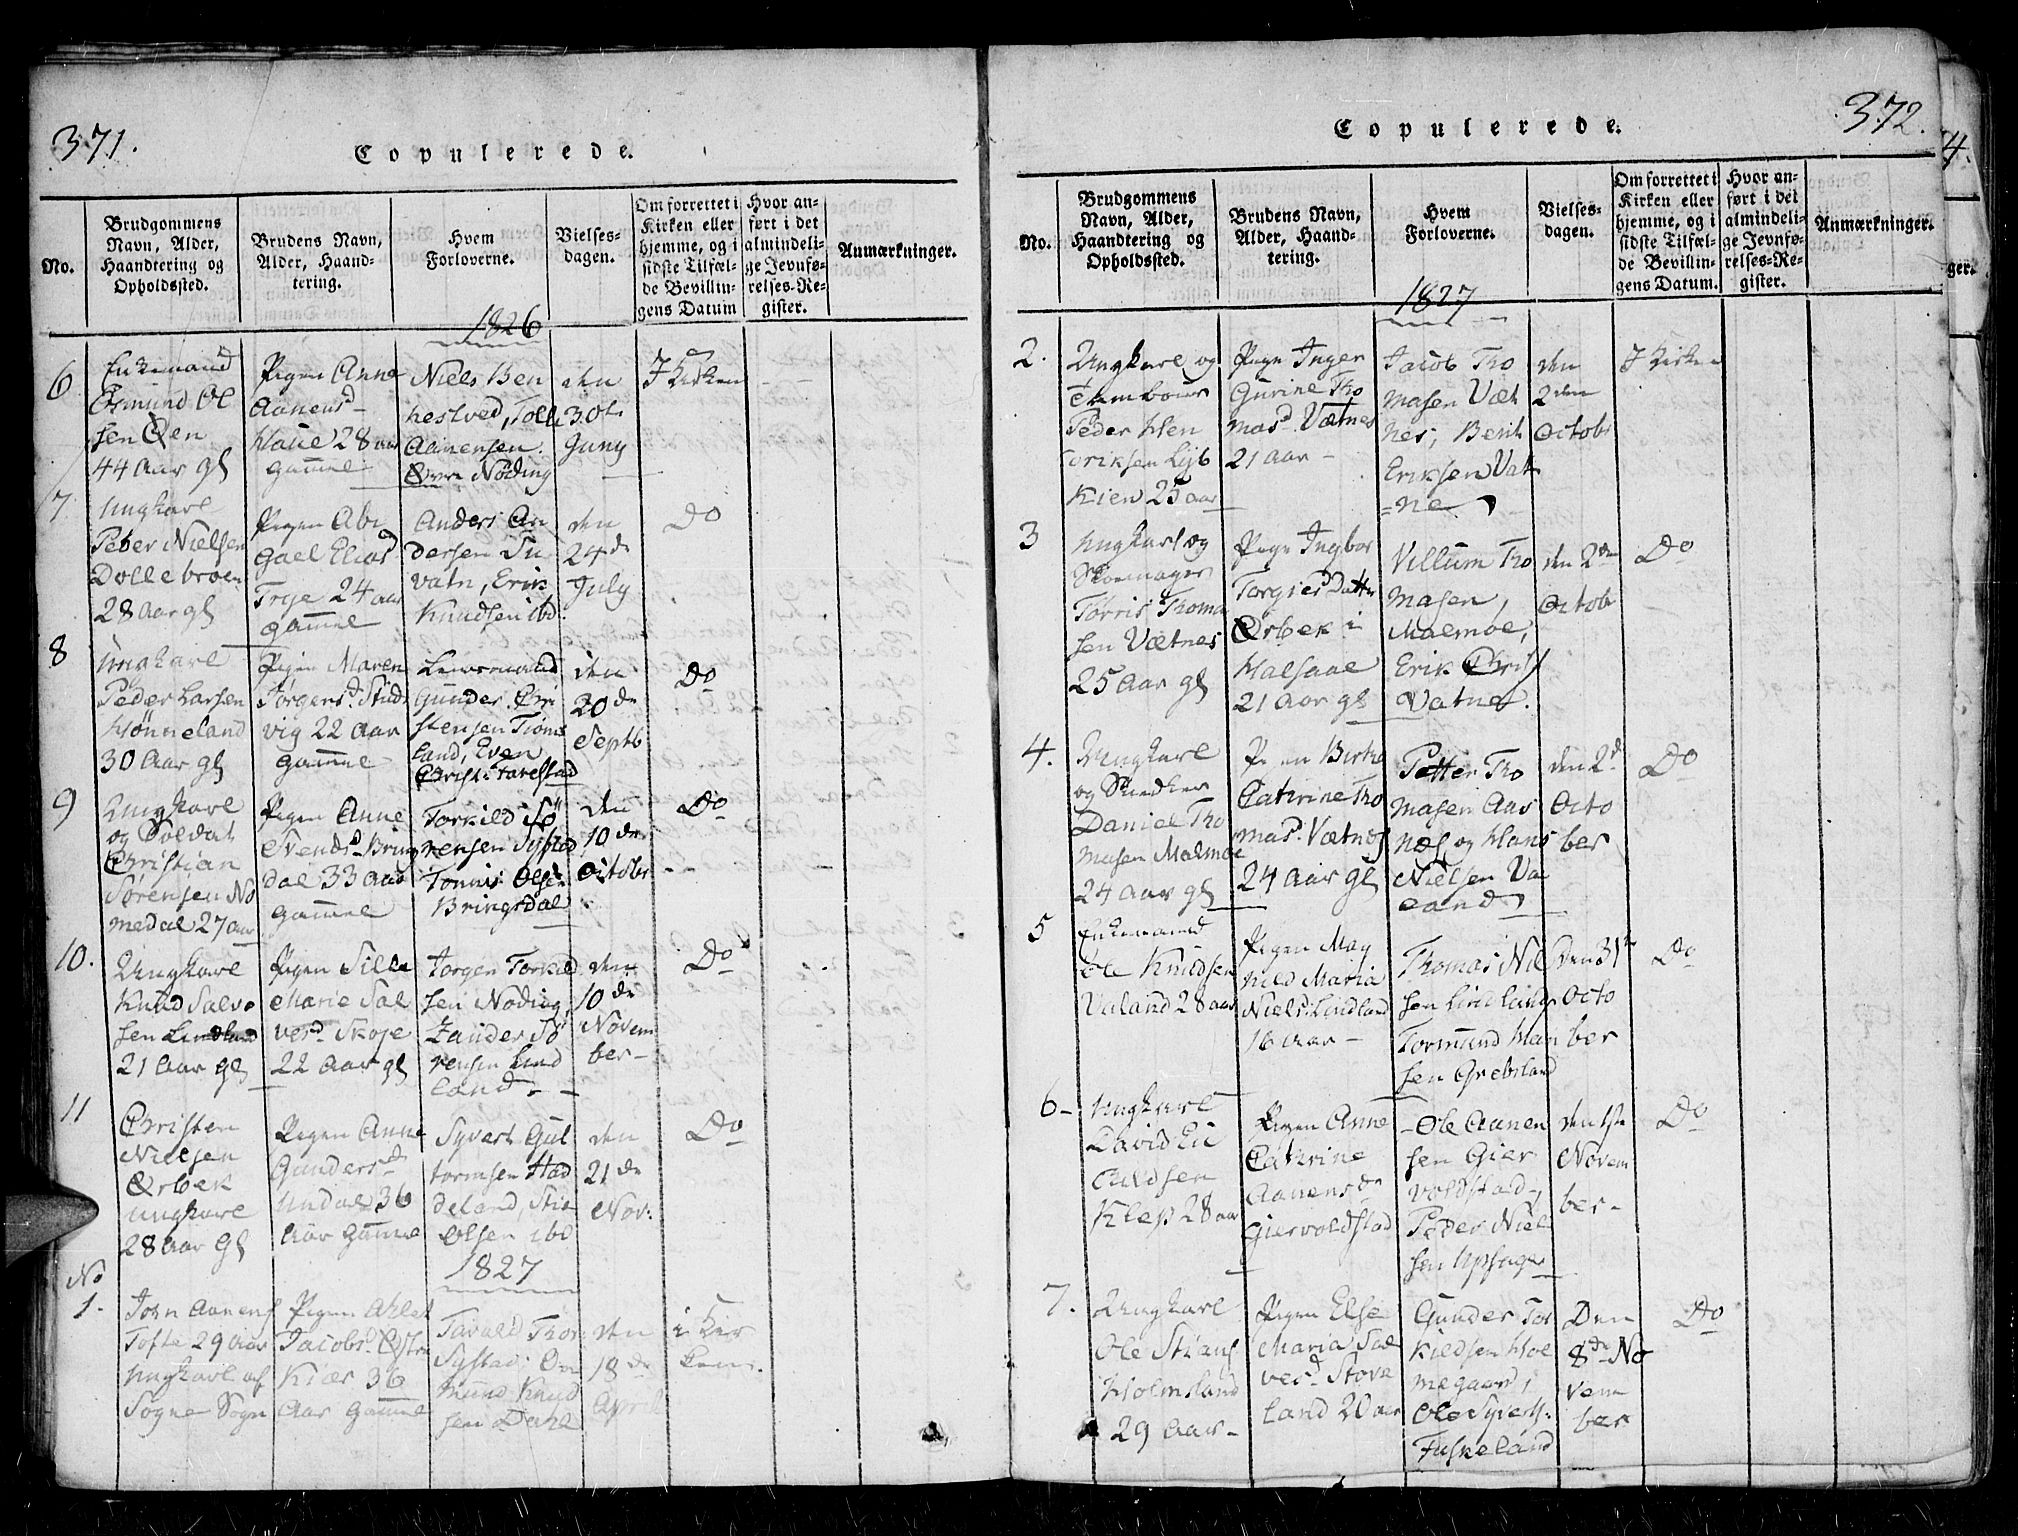 371.
Copulerede.
No.
Brudgommens
Navn, Alder,
Haandtering og
Opholdssted.
Brudens Navn,
Alder, Haand-
tering.
Hvem
Forloverne.
Vielses-
dagen.
Om forrettet i
Kirken eller
hjemme, og i
sidste Tilfæl-
de Bevillin-
gens Datum
Hvor an-
ført i det
almindeli-
ge Jevnfø-
relses-Re-
gister.
Anmærkninger.
1826
6
Enkemand
Osmund Ol
sen Øen
44 Aar gl
Pigen Anne
Aanensd
Haue 28 aar
gammel
Niels Ben
hestved, Tolle
Aanensen
Øvre Nøding
den
30te
Juny
I Kirken
7.
Ungkarl
Peter Nielsen
Dollebroen
28 Aar gl
Pigen Abi
gael Eliasd
Trye 24 aar
gammel
Anders An
dersen Tu
vatn, Erik
Knudsen ibd
den
24de
July
Do
8
Ungkarl
Peder Larsen
Hønneland
30 Aar gl
Pigen Maren
Jørgensd. Studs
vig 22 Aar
gammel
Lensmand
Gunder Chri
stensen Tiøms
land, Even
Christ: Tarestad
den
20de
Septb
Do
9
Ungkarl
og Soldat
Christian
Sørensen No
medal 27 aar
Pigen Anne
Svendsd. Brings
dal 33 Aar
gammel
Torkild Sø
rensen Systad
Tønnis Olsen
Bringsdal
den
10de
Octobr
Do
10.
Ungkarl
Knud Salve
sen Lindland
21 Aar gl
Pigen Sille
Marie Sal
versd. Skoje
22 Aar gl
Jørgen Torkild
sen Noding,
Zander Sø
rensen Lind
land.
den
10de
Novem
ber
Do
11
Christen
Nielsen
Ørbek
ungkarl
28 Aar gl
Pigen Anne
Gundersd
Undal 36
Aar gammel
Syvert Gul
tormsen Had
deland, Stie
Olsen ibd
den
21de
Nov:
Do
1827
No
1.
Jørn Aanens
Tofte 29 Aar
ungkarl af
Søgne Sogn
Pigen Ahlet
Jacobsd. Østre
Kiær 36
Aar gammel
Tarald Thor
Systad: Os
mund Knud
sen Dahl
den
18de
April
i Kir
ken.
372.
Copulerede.
No.
Brudgommens
Navn, Alder,
Haandtering og
Opholdssted.
Brudens Navn,
Alder, Haand-
tering.
Hvem
Forloverne.
Vielses-
dagen.
Om forrettet i
Kirken eller
hjemme, og i
sidste Tilfæl-
de Bevillin-
gens Datum.
Hvor an-
ført i det
almindeli-
ge Jevnfø-
relses-Re-
gister.
Anmærkninger.
1827
2.
Ungkarl og
Tambour
Peder Hen
driksen Lyb
Kien 25 aar
Pige Inger
Gurine Tho
masd. Vætnes
21 Aar
Jacob Tho
masen Væt
nes, Berit
Eriksen Vat
=ne
den
2den
Octobr
I Kirken
3
Ungkarl og
Skomager
Tørris Thoma
sen Vætnes
25 Aar gl
Pige Ingbor
Torgiesd Datter
Ørbek i
Halsaae
21 Aar gl
Villum Tho
masen,
Malmøe,
Erik Christ
Vatne.
den 2den
Octob
Do
4.
Ungkarl
og Snedker
Daniel Tho
masen Malmøe
24 Aar gl
Pigen Birthe
Cathrine Tho
masd. Vætnes
24 Aar gl
Petter Tho
masen Aas
næs, og Hans
Nielsen Va
land
den 2d
Octo
ber
Do
5
Enkemand
Ole Knudsen
Valand 28 aar
Pigen Mag
nild Maria
Niels: Lindland
16 Aar
Thomas Niel
sen Lindland
Tormund Han
sen Grebsland
Den 31te
Octo
ber
Do
6
Ungkarl
David Ei
Klep 28 aar
Pigen Anne
Cathrine
Aanensde
Giervoldstad
Ole Aanen
sen Gier
voldstad,
Peder Niel
sen
den 1ste
Novem
ber
Do
7.
Ungkarl
Ole Stians
Holmsland
29 Aar
Pigen Else
Maria Sal
vesd. Stove
land 20 aar
Gunder Tor
kieldsen Hol
megaard,
Ole Syverts:
Fuskeland
Den
8de No
vem
ber
Do
4.
ger.